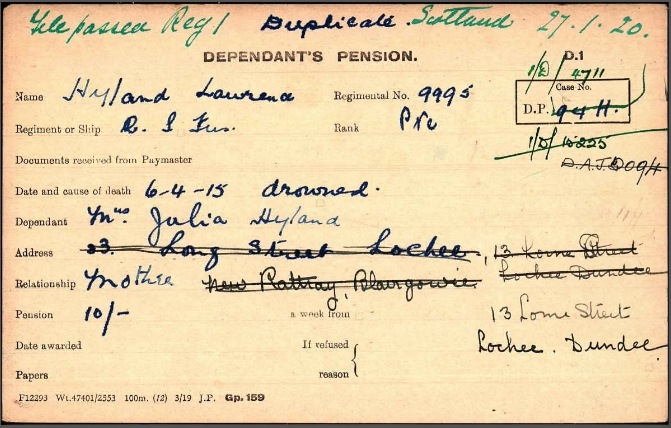 File passed Reg 1 Duplicate. Scotland 27.1.20.
DEPENDANT'S PENSION. D.1
1/D/ 4711
Name Hyland Lawrence Regimental No. 9995
Case No.
D.P. 94 H.
Regiment or Ship R. S. Fus. Rank Pte
1/D/ 15225
Documents received from Paymaster
Date and cause of death 6-4-15 drowned.
Dependant Mrs Julia Hyland
Address 33. Long Street Lochee, 13 Lorne Street
Lochee Dundee
Relationship Mother New Rattray, Blairgowrie
Pension 10/- a week from 13 Lorne Street
Lochee. Dundee
Date awarded If refused
Papers reason
F12293 Wt.47401/2553 100m. (12) 3/19 J.P. Gp. 159